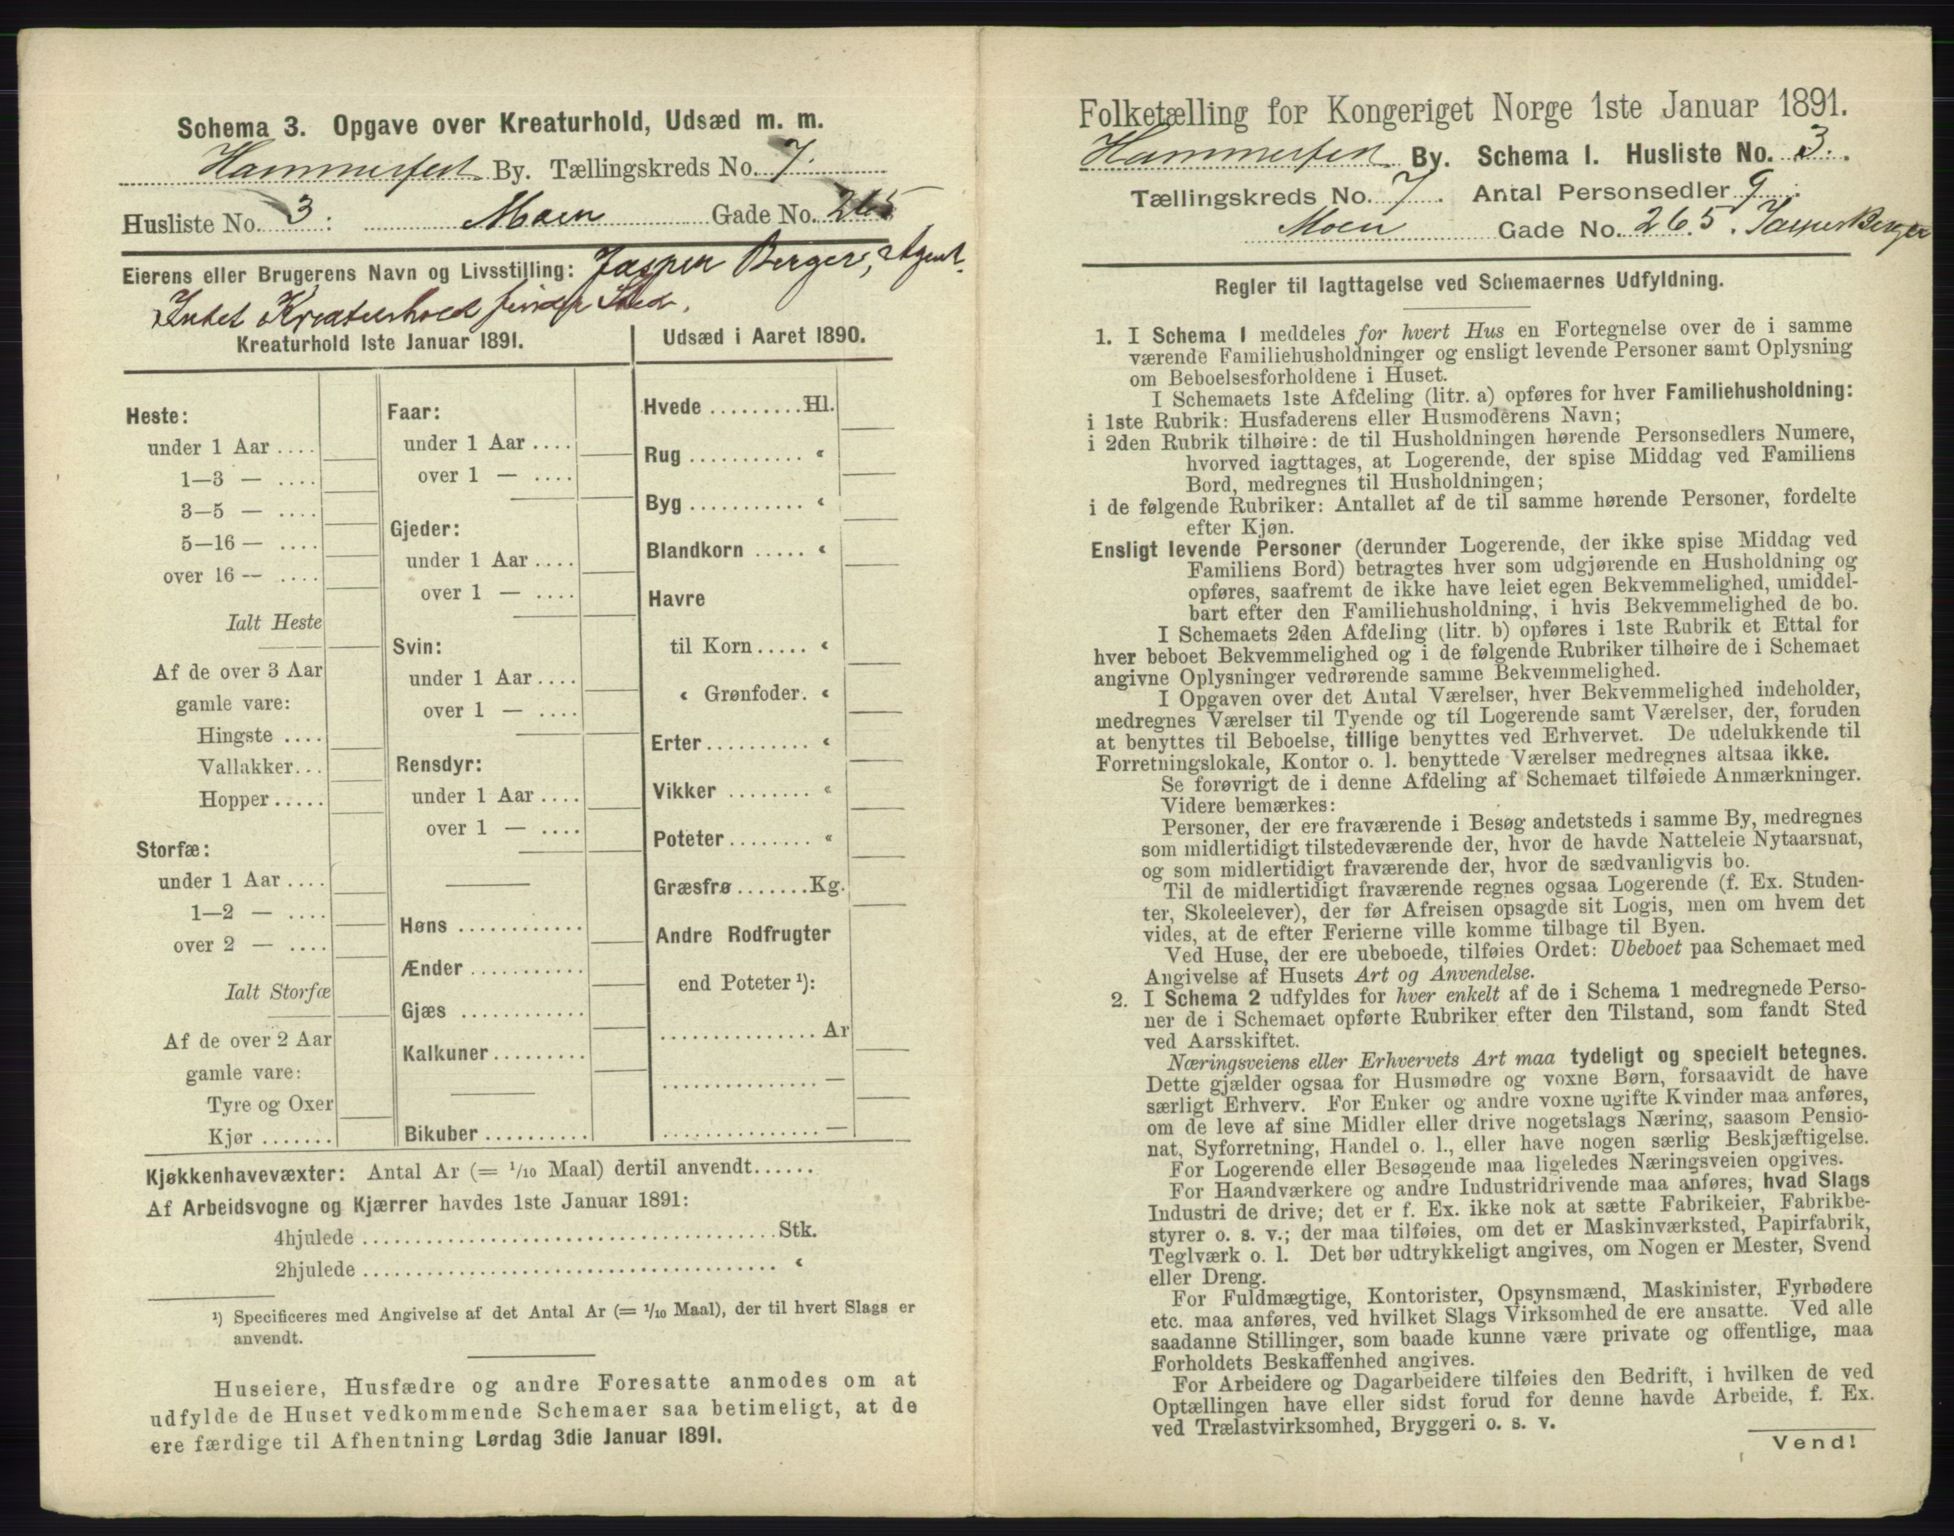 Schema 3. Opgave over Kreaturhold, Udsæd m. m.
Hammerfest By. Tællingskreds No. 7.
Husliste No. 3: Moen Gade No. 265
Eierens eller Brugerens Navn og Livsstilling: Jasper Berger, Agent.
Intet Kreaturhold finder Sted.
Kreaturhold 1ste Januar 1891.
Heste:
under 1 Aar ....
1—3 — ....
3—5 — ....
5—16 — ....
over 16 — ....
Ialt Heste
Af de over 3 Aar
gamle vare:
Hingste ....
Vallakker...
Hopper.....
Storfæ:
under 1 Aar ....
1—2 — ....
over 2 — ....
Ialt Storfæ
Af de over 2 Aar
gamle vare:
Tyre og Oxer
Kjør .......
Faar:
under 1 Aar ....
over 1 — ....
Gjeder:
under 1 Aar ....
over 1 — ....
Svin:
under 1 Aar....
over 1 — ....
Rensdyr:
under 1 Aar....
over 1 — ....
Høns ............
Ænder ...........
Gjæs ............
Kalkuner.........
Bikuber..........
Udsæd i Aaret 1890.
Hvede .........Hl.
Rug ........... “
Byg ........... “
Blandkorn ..... “
Havre
til Korn..... “
“ Grønfoder. “
Erter.......... “
Vikker ........ “
Poteter ....... “
Græsfrø .......Kg.
Andre Rodfrugter
end Poteter ¹):
............... Ar
............... —
............... —
Kjøkkenhavevæxter: Antal Ar (= 1/10 Maal) dertil anvendt......
Af Arbeidsvogne og Kjærrer havdes 1ste Januar 1891:
4hjulede ........................................Stk.
2hjulede ........................................ “
¹) Specificeres med Angivelse af det Antal Ar (= 1/10 Maal), der til hvert Slags er
anvendt.
Huseiere, Husfædre og andre Foresatte anmodes om at
udfylde de Huset vedkommende Schemaer saa betimeligt, at de
ere færdige til Afhentning Lørdag 3die Januar 1891.
Folketælling for Kongeriget Norge 1ste Januar 1891.
Hammerfest By. Schema 1. Husliste No. 3.
Tællingskreds No. 7. Antal Personsedler 9.
Moen Gade No. 265. Jasper Berger
Regler til Iagttagelse ved Schemaernes Udfyldning.
1. I Schema 1 meddeles for hvert Hus en Fortegnelse over de i samme
værende Familiehusholdninger og ensligt levende Personer samt Oplysning
om Beboelsesforholdene i Huset.
I Schemaets 1ste Afdeling (litr. a) opføres for hver Familiehusholdning:
i 1ste Rubrik: Husfaderens eller Husmoderens Navn;
i 2den Rubrik tilhøire: de til Husholdningen hørende Personsedlers Numere,
hvorved iagttages, at Logerende, der spise Middag ved Familiens
Bord, medregnes til Husholdningen;
i de følgende Rubriker: Antallet af de til samme hørende Personer, fordelte
efter Kjøn.
Ensligt levende Personer (derunder Logerende, der ikke spise Middag ved
Familiens Bord) betragtes hver som udgjørende en Husholdning og
opføres, saafremt de ikke have leiet egen Bekvemmelighed, umiddel-
bart efter den Familiehusholdning, i hvis Bekvemmelighed de bo.
I Schemaets 2den Afdeling (litr. b) opføres i 1ste Rubrik et Ettal for
hver beboet Bekvemmelighed og i de følgende Rubriker tilhøire de i Schemaet
angivne Oplysninger vedrørende samme Bekvemmelighed.
I Opgaven over det Antal Værelser, hver Bekvemmelighed indeholder,
medregnes Værelser til Tyende og til Logerende samt Værelser, der, foruden
at benyttes til Beboelse, tillige benyttes ved Erhvervet. De udelukkende til
Forretningslokale, Kontor o. l. benyttede Værelser medregnes altsaa ikke.
Se forøvrigt de i denne Afdeling af Schemaet tilføiede Anmærkninger.
Videre bemærkes:
Personer, der ere fraværende i Besøg andetsteds i samme By, medregnes
som midlertidigt tilstedeværende der, hvor de havde Natteleie Nytaarsnat,
og som midlertidigt fraværende der, hvor de sædvanligvis bo.
Til de midlertidigt fraværende regnes ogsaa Logerende (f. Ex. Studen-
ter, Skoleelever), der før Afreisen opsagde sit Logis, men om hvem det
vides, at de efter Ferierne ville komme tilbage til Byen.
Ved Huse, der ere ubeboede, tilføies Ordet: Ubeboet paa Schemaet med
Angivelse af Husets Art og Anvendelse.
2. I Schema 2 udfyldes for hver enkelt af de i Schema 1 medregnede Perso-
ner de i Schemaet opførte Rubriker efter den Tilstand, som fandt Sted
ved Aarsskiftet.
Næringsveiens eller Erhvervets Art maa tydeligt og specielt betegnes.
Dette gjælder ogsaa for Husmødre og voxne Børn, forsaavidt de have
særligt Erhverv. For Enker og andre voxne ugifte Kvinder maa anføres,
om de leve af sine Midler eller drive nogetslags Næring, saasom Pensio-
nat, Syforretning, Handel o. l., eller have nogen særlig Beskjæftigelse.
For Logerende eller Besøgende maa ligeledes Næringsveien opgives.
For Haandværkere og andre Industridrivende maa anføres, hvad Slags
Industri de drive; det er f. Ex. ikke nok at sætte Fabrikeier, Fabrikbe-
styrer o. s. v.; der maa tilføies, om det er Maskinværksted, Papirfabrik,
Teglværk o. l. Det bør udtrykkeligt angives, om Nogen er Mester, Svend
eller Dreng.
For Fuldmægtige, Kontorister, Opsynsmænd, Maskinister, Fyrbødere
etc. maa anføres, ved hvilket Slags Virksomhed de ere ansatte. Ved alle
saadanne Stillinger, som baade kunne være private og offentlige, maa
Forholdets Beskaffenhed angives.
For Arbeidere og Dagarbeidere tilføies den Bedrift, i hvilken de ved
Optællingen have eller sidst forud for denne havde Arbeide, f. Ex.
ved Trælastvirksomhed, Bryggeri o. s. v.
Vend!